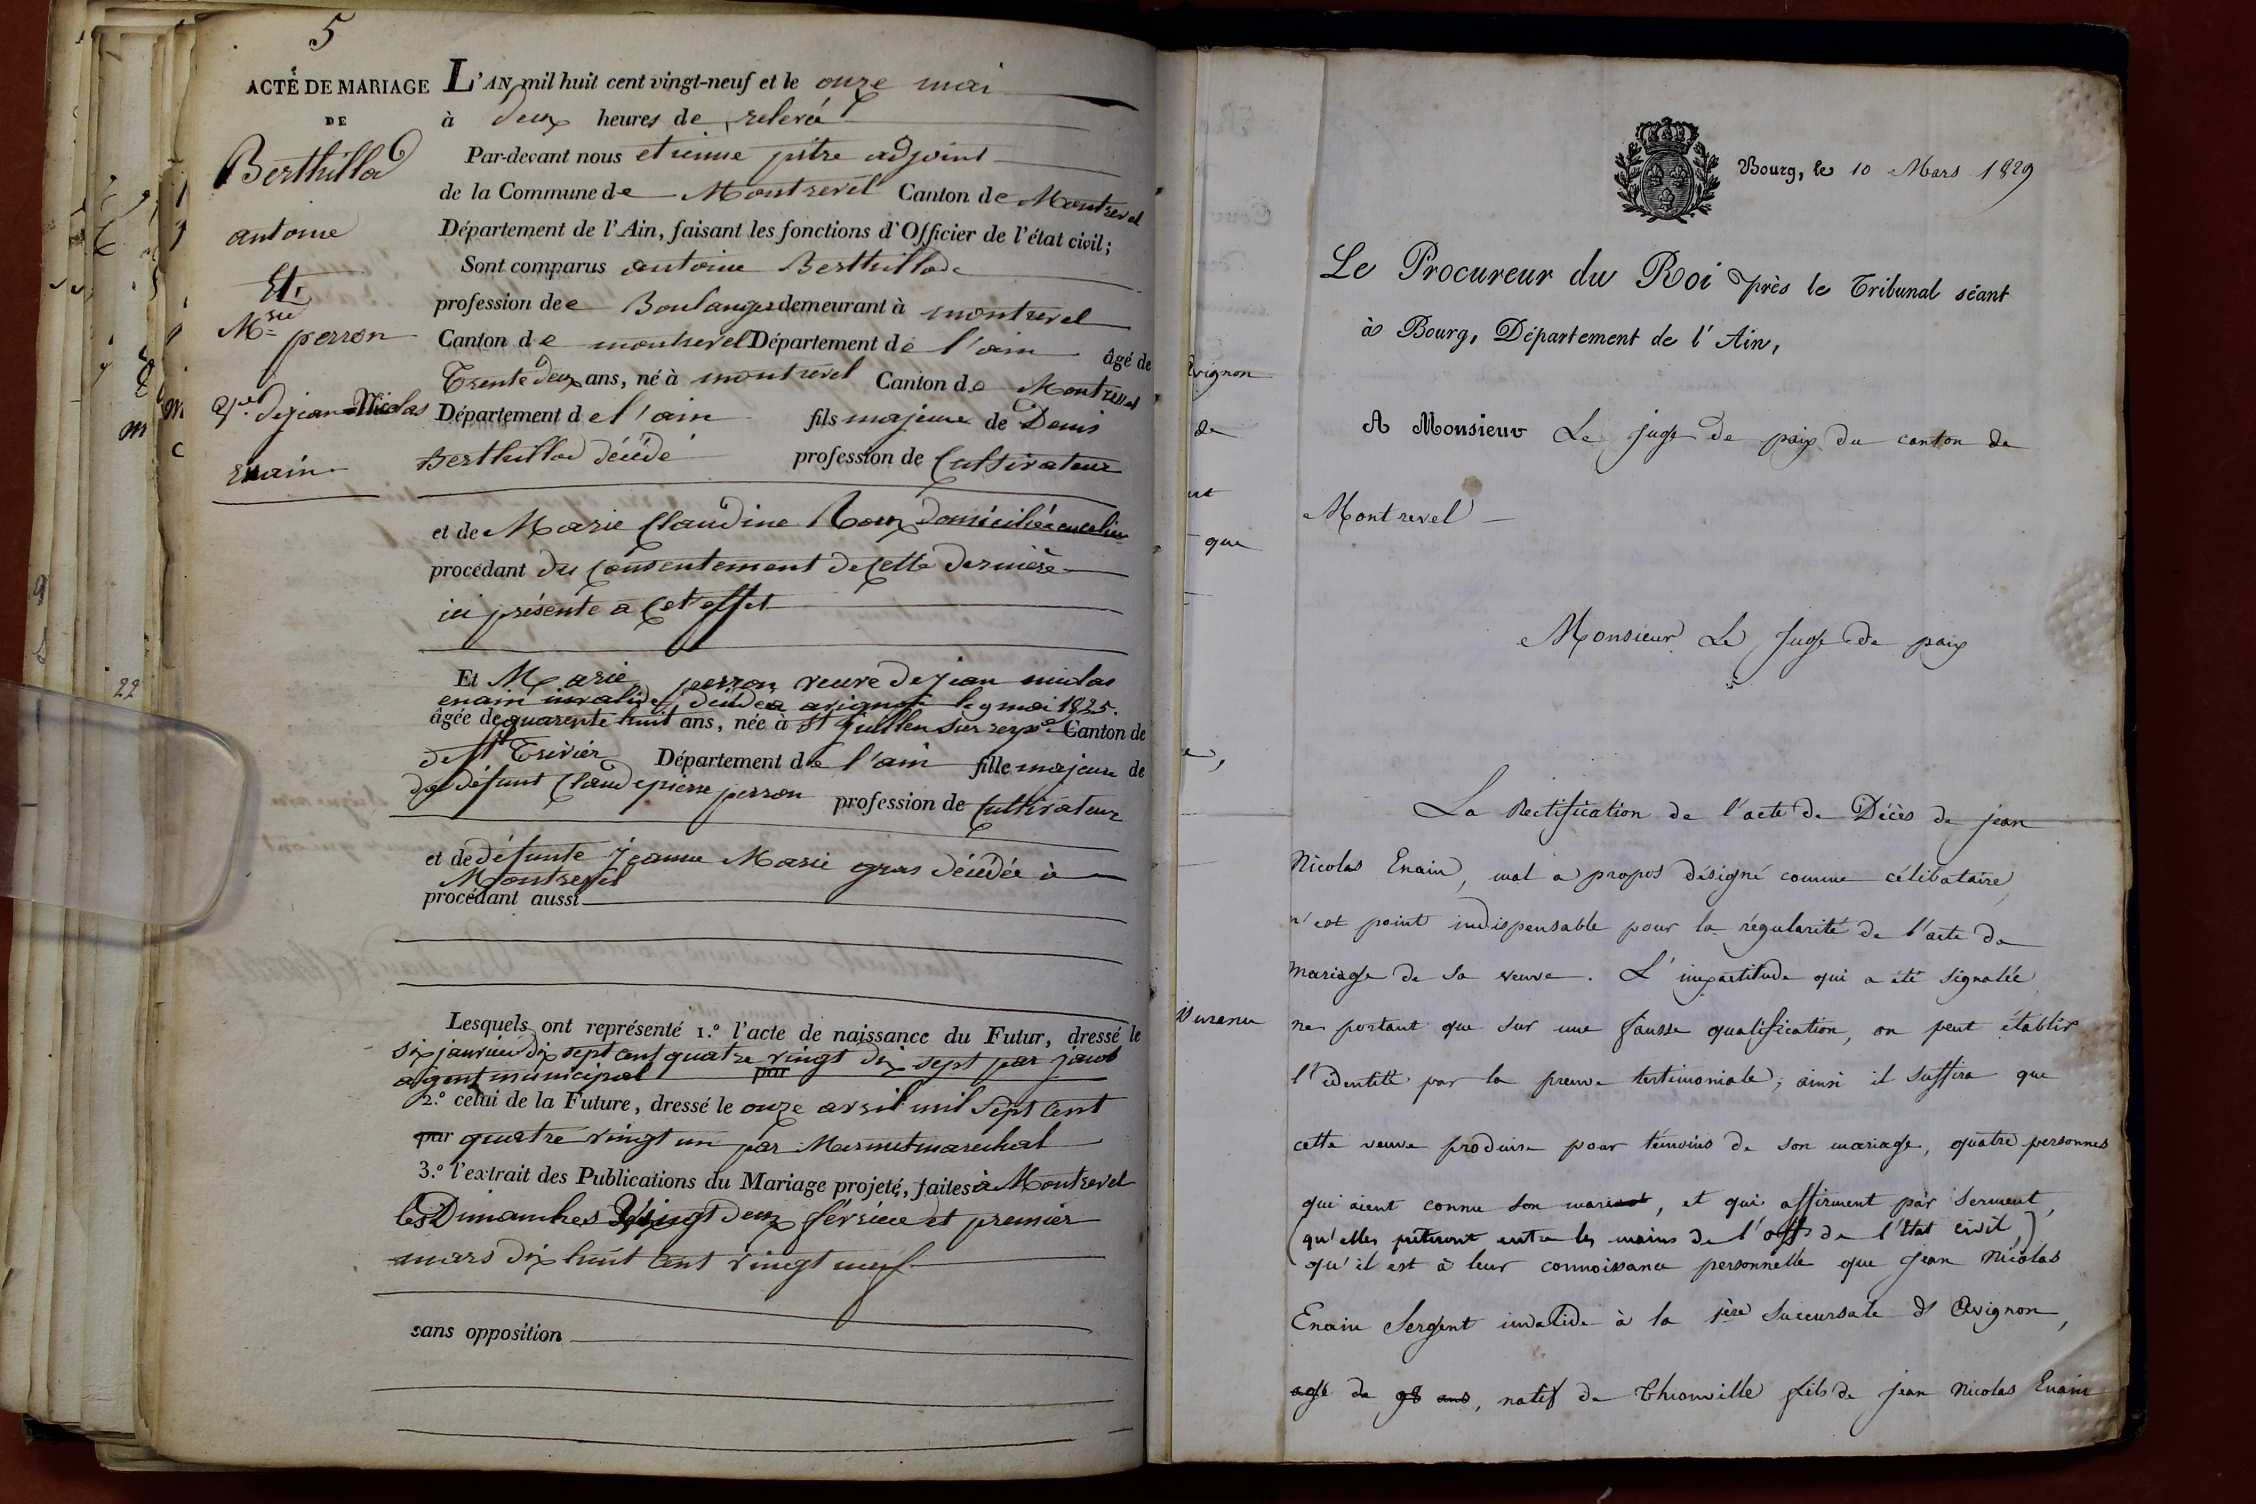 5
ACTE DE MARIAGE
DE
Berthillod
antoine
Et
M.rie perron
V.ve de jean Nicolas
Enain
L'AN mil huit cent vingt-neuf et le onze mai
à deux heures de relevé
Par-devant nous etienne pitre adjoint
de la Commune de Montrevel Canton de Montrevel
Département de l'Ain, faisant les fonctions d'Officier de l'état civil;
Sont comparus antoine Berthillod
profession de Boulanger demeurant à montrevel
Canton de montrevel Département de l'ain âgé de
Trente deux ans, né à montrevel Canton de Montrevel
Département de l'ain fils majeur de Denis
Berthillod décédé profession de Cultivateur
et de Marie Claudine Roux domiciliée
procédant du Consentement de Cette dernière
ici présente a Cet effet
Et Marie perron veuve de jean nicolas
enain invalide, décédé a avignon le 9 mai 1825.
âgée de quarente huit ans, née à St jullien sur reyss.e Canton de
de St Trivier Département de l'ain fille majeure de
de défunt Claude pierre perron profession de Cultivateur
et de défunte jeanne Marie gras décédée à
Montrevel
procédant aussi
Lesquels ont représenté 1.º l'acte de naissance du Futur, dressé le
six janvier dix sept cent quatre vingt dix sept par jacob
agent municipal par
2.º celui de la Future, dressé le onze avril mil sept cent
par quatre vingt un par Mermet marechal
3.º l'extrait des Publications du Mariage projeté, faites à Montrevel
les Dimanches Vingt deux février et premier
mars dix huit cent vingt neuf
sans opposition
22
avignon
de
que
Bourg, le 10 Mars 1829
Le Procureur du Roi près le Tribunal séant
à Bourg, Département de l'Ain,
A Monsieur Le juge de paix du canton de
Montrevel
Monsieur Le Juge de paix
La Rectification de l'acte de Décès de jean
Nicolas Enain, mal a propos désigné comme célibataire,
n'est point indispensable pour la régularité de l'acte de
mariage de sa veuve. L'inexactitude qui a été signalée
ne portant que sur une fausse qualification, on peut établir
l'identité par la preuve testimoniale; ainsi il suffira que
cette veuve produise pour témoins de son mariage, quatre personnes
qui aient connu son mari, et qui affirment par serment,
(qu'elles prêteront entre les mains de l'off. de l'Etat civil,)
qu'il est à leur connoissance personnelle que Jean Nicolas
Enain Sergent invalide à la 1ère Succursale d'Avignon,
agé de 98 ans, natif de Thionville fils de jean Nicolas Enain